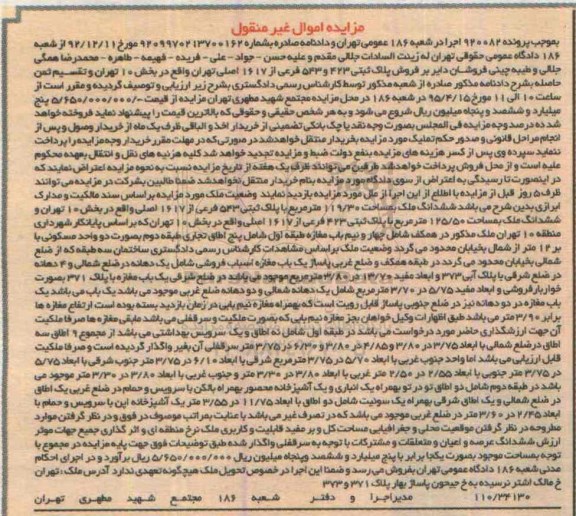 مزایده اموال غیر منقول
بموجب پرونده ۹۲۰۰۸۲ اجرا در شعبه ۱۸۶ عمومی تهران و دادنامه صادره بشماره ۹۲۰۹۹۷۰۲۱۳۷۰۰۱۶۲ مورخ ۹۲/۱۲/۱۱ از شعبه
۱۸۶ دادگاه عمومی حقوقی تهران له زینت السادات جلالی مقدم و علیه حسن - جواد - علی - فریده - فهیمه - طاهره - محمدرضا همگی
جلالی و طیبه چینی فروشان دایر بر فروش پلاک ثبتی ۴۲۳ و ۵۴۳ فرعی از ۱۶۱۷ اصلی تهران واقع در بخش ۱۰ تهران و تقسیم ثمن
حاصله بشرح دادنامه مذکور صادره از شعبه مذکور توسط کارشناس رسمی دادگستری بشرح زیر ارزیابی و توصیف گردیده و مقرر است از
ساعت ۱۰ الی ۱۱ مورخ ۹۵/۴/۱۵ در شعبه ۱۸۶ در محل مزایده مجتمع شهید مطهری تهران مزایده از قیمت ۵/۶۵۰/۰۰۰/۰۰۰/- پنج
میلیارد و ششصد و پنجاه میلیون ریال شروع می شود و به هر شخص حقیقی و حقوقی که بالاترین قیمت را پیشنهاد نماید فروخته خواهد
شد ده درصد وجه مزایده فی المجلس بصورت وجه نقد یا چک بانکی تضمینی از خریدار اخذ و الباقی ظرف یک ماه از خریدار وصول و پس از
انجام مراحل قانونی و صدور حکم تملیک مورد مزایده بخریدار منتقل خواهد شد در صورتی که در مهلت مقرر خریدار وجه مزایده را پرداخت
ننماید سپرده وی پس از کسر هزینه های مزایده بنفع دولت ضبط و مزایده تجدید خواهد شد کلیه هزینه های نقل و انتقال بعهده محکوم
علیه است و از محل فروش پرداخت خواهد شد طرفین می‌توانند ظرف یک هفته از تاریخ مزایده نسبت به نحوه مزایده اعتراض نمایند که
در اینصورت تا رسیدگی به اعتراض از سوی دادگاه مورد مزایده بنام خریدار منتقل نخواهد شد ضمنا طالبین بشرکت در مزایده می توانند
ظرف ۵ روز قبل از مزایده با اطلاع از این اجرا از ملک مورد مزایده بازدید نمایند وضعیت ملک مورد مزایده براساس سند مالکیت و مدارک
ابرازی بدین شرح می باشد ششدانگ ملک بمساحت ۱۱۹/۳۰ مترمربع با پلاک ثبتی ۵۴۳ فرعی از ۱۶۱۷ اصلی واقع در بخش ۱۰ تهران و
ششدانگ ملک بمساحت ۱۲۵/۵۰ مترمربع با پلاک ثبتی ۴۲۳ فرعی از ۱۶۱۷ اصلی واقع در بخش ۱۰ تهران که براساس پایانکار شهرداری
منطقه ۱۰ تهران ملک مذکور در همکف شامل چهار و نیم باب مغازه طبقه اول شامل پنج اطاق تجاری طبقه دوم بصورت دو واحد مسکونی با
بر ۱۴ متر از شمال بخیابان محدود می گردد وضعیت ملک براساس مشاهدات کارشناس رسمی دادگستری ساختمان سه طبقه که از ضلع
شمالی بخیابان محدود می گردد در طبقه همکف و ضلع غربی پاساژ یک باب مغازه اسباب فروشی شامل یک دهانه در ضلع شمالی و ۴ دهانه
در ضلع شرقی با پلاک آبی ۳۷۳ و ابعاد مفید ۱۳/۷۰ در ۳/۸۰ مترمربع موجود می باشد در ضلع شرقی یک باب مغازه با پلاک ۳۷۱ بصورت
خواربار فروشی و ابعاد مفید ۵/۷۵ در ۳/۷۰ مترمربع شامل یک دهانه شمالی و دو دهانه ضلع غربی موجود می باشد یک باب می باشد یک
باب مغازه در دو دهانه نیز در ضلع جنوبی پاساژ قابل رویت است که بهمراه مغازه نیم بابی در زمان بازدید بسته بوده است ارتفاع مغازه ها
برابر ۳/۹۰ متر می باشد طبق اظهارات وکیل خواهان بجز مغازه نیم بابی که بصورت ملکیت و سرقفلی می باشد مابقی مغازه ها صرفا ملکیت
آن جهت ارزشگذاری حاضر مورد درخواست می باشد در طبقه اول شامل نه اطاق و یک سرویس بهداشتی می باشد از مجموع ۹ اطاق سه
اطاق در ضلع شمالی با ابعاد ۳/۷۵ در ۳/۸۰ و ۴/۸۵ در ۳/۸۰ و ۶/۳۰ در ۳/۷۵ متر سرقفلی آن بغیر واگذار گردیده است و صرفا ملکیت
قابل ارزیابی می باشد اما واحد جنوب غربی با ابعاد ۵/۷۰ در ۳/۷۵ مترمربع شرقی با ابعاد ۶/۱۰ در ۳/۷۵ متر جنوب شرقی با ابعاد ۵/۷۵
در ۳/۷۵ متر جنوبی با ابعاد ۲/۵۵ در ۲/۵۰ متر غربی با ابعاد ۳/۸۰ در ۳/۳۰ متر و جنوب غربی با ابعاد ۳/۸۰ در ۳/۳۰ متر موجود می
باشد در طبقه دوم شامل دو اطاق تو در تو بهمراه یک انباری و یک آشپزخانه محصور بهمراه بالکن با سرویس و حمام در ضلع غربی یک اطاق
در ضلع شمالی و یک اطاق شرقی بهمراه یک سوئیت شامل دو اطاق با ابعاد ۱۱/۷۵ در ۳/۵۵ متر یک آشپزخانه این با سرویس و حمام با
ابعاد ۲/۴۵ در ۳/۶۰ متر در ضلع غربی موجود می باشد که در تصرف غیر می باشد با عنایت بمراتب موصوف در فوق و در نظر گرفتن موارد
مطروحه در نظر گرفتن موقعیت محلی و جغرافیایی مساحت کل و بر مفید قابلیت و کاربری ملک نرخ منطقه ای و اثر گذاری جمیع جهات موثر
ارزش ششدانگ عرصه و اعیان و متعلقات و مشترکات با توجه به سرقفلی واگذار شده طبق توضیحات فوق جهت پایه مزایده در مجموع با
توجه بمساحت موجود بصورت یکجا برابر با پنج میلیارد و ششصد و پنجاه میلیون ریال ۵/۶۵۰/۰۰۰/۰۰۰ ریال برآورد و در اجرای احکام
مدنی شعبه ۱۸۶ دادگاه عمومی تهران بفروش می رسد و ضمنا این اجرا در خصوص تحویل ملک هیچگونه تعهدی ندارد آدرس ملک: تهران
خ مالک اشتر نرسیده به خ جیحون پاساژ بهار پلاک ۳۷۱ و ۳۷۳
۱۱۰/۳۴۱۳۰ مدیر اجرا و دفتر شعبه ۱۸۶ مجتمع شهید مطهری تهران